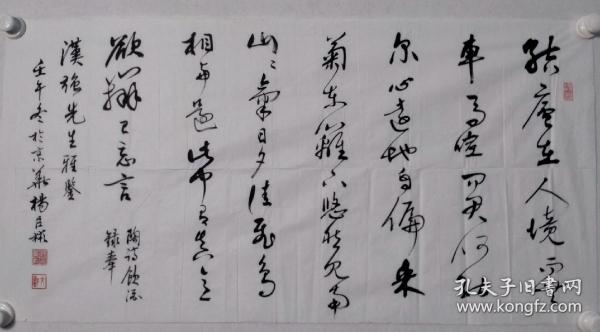 結廬在人境而無
車馬喧問君何能
尔心遠地自偏采
菊東籬下悠然見南
山々氣日夕佳飛鳥
相與還此中有真意
欲辨已忘言
陶詩飲酒
録奉
漢強先生雅鑒
壬午冬於京華楊臣彬
孔夫子旧书网
www.kongfz.com